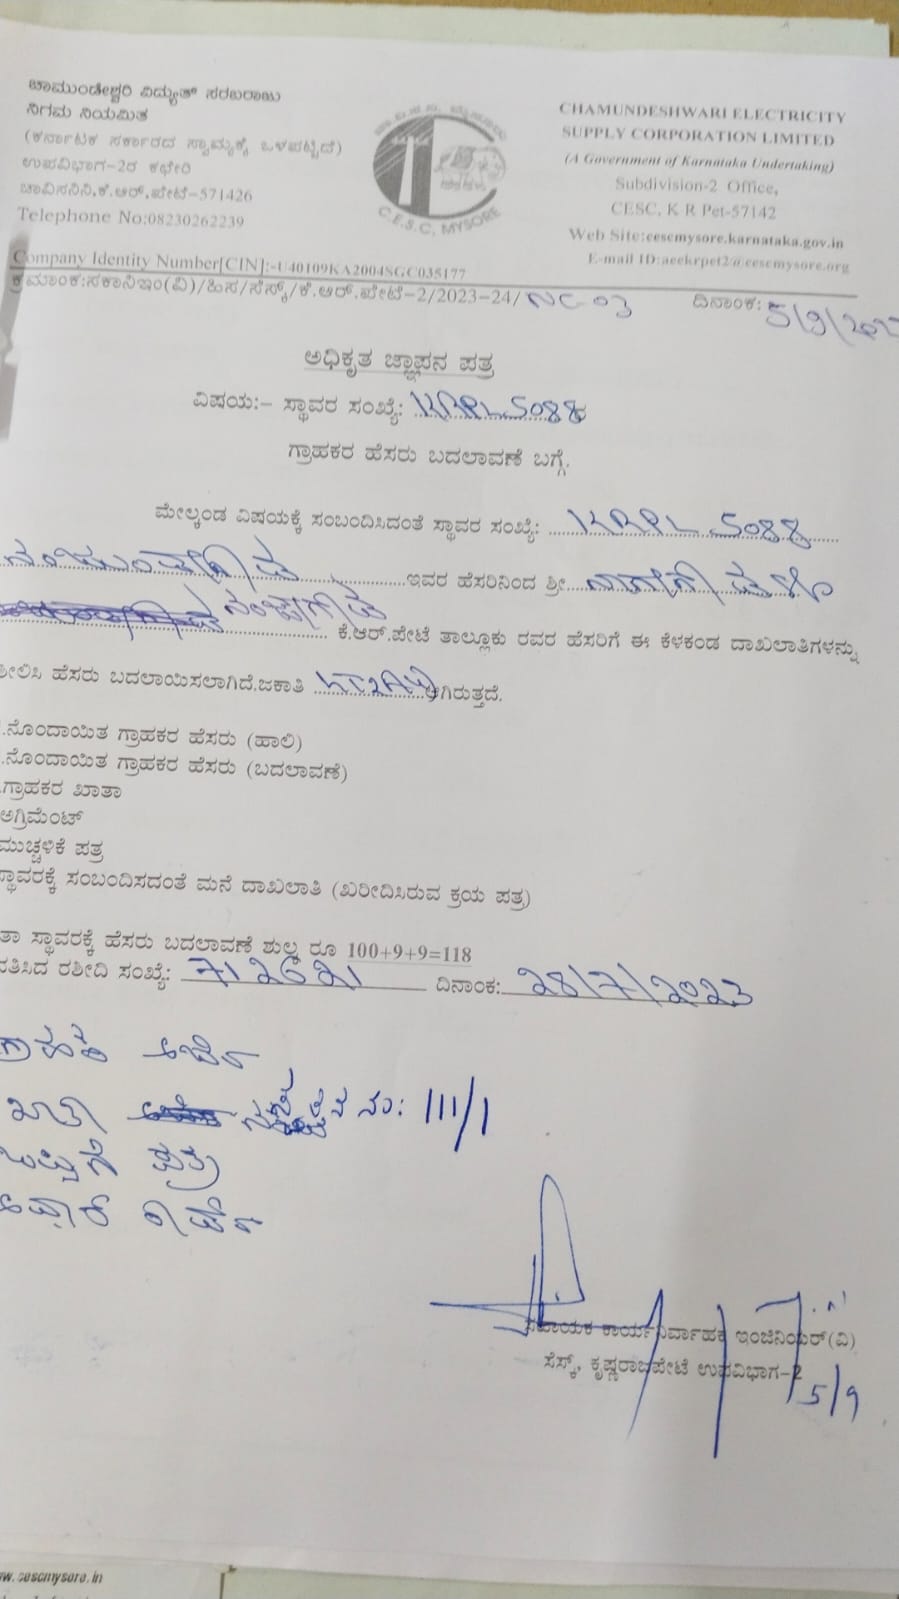 ಚಾಮುಂಡೇಶ್ವರಿ ವಿದ್ಯುತ್ ಸರಬರಾಜು
ನಿಗಮ ನಿಯಮಿತ
(ಕರ್ನಾಟಕ ಸರ್ಕಾರದ ಸ್ವಾಮ್ಯಕ್ಕೆ ಒಳಪಟ್ಟಿದೆ)
ಉಪವಿಭಾಗ-2ರ ಕಛೇರಿ
ಚಾವಿಸನಿನಿ,ಕೆ.ಆರ್.ಪೇಟೆ-571426
Telephone No:08230262239
C.E.S.C, MYSORE
CHAMUNDESHWARI ELECTRICITY
SUPPLY CORPORATION LIMITED
(A Government of Karnataka Undertaking)
Subdivision-2 Office,
CESC, K R Pet-57142
Web Site:cescmysore.karnataka.gov.in
E-mail ID:aeekrpet2@cescmysore.org
Company Identity Number[CIN]:-U40109KA2004SGC035177
ಕ್ರಮಾಂಕ:ಸಕಾನಿಇಂ(ವಿ)/ಹಿಸ/ಸೆಸ್ಕ್/ಕೆ.ಆರ್.ಪೇಟೆ-2/2023-24/ NC-03 ದಿನಾಂಕ: 5/9/202
ಅಧಿಕೃತ ಜ್ಞಾಪನ ಪತ್ರ
ವಿಷಯ:- ಸ್ಥಾವರ ಸಂಖ್ಯೆ: KRPL 5088
ಗ್ರಾಹಕರ ಹೆಸರು ಬದಲಾವಣೆ ಬಗ್ಗೆ.
ಮೇಲ್ಕಂಡ ವಿಷಯಕ್ಕೆ ಸಂಬಂದಿಸಿದಂತೆ ಸ್ಥಾವರ ಸಂಖ್ಯೆ: KRPL 5088
ಇವರ ಹೆಸರಿನಿಂದ ಶ್ರೀ
ಕೆ.ಆರ್.ಪೇಟೆ ತಾಲ್ಲೂಕು ರವರ ಹೆಸರಿಗೆ ಈ ಕೆಳಕಂಡ ದಾಖಲಾತಿಗಳನ್ನು
ಶೀಲಿಸಿ ಹೆಸರು ಬದಲಾಯಿಸಲಾಗಿದೆ.ಜಕಾತಿ ಆಗಿರುತ್ತದೆ.
.ನೊಂದಾಯಿತ ಗ್ರಾಹಕರ ಹೆಸರು (ಹಾಲಿ)
.ನೊಂದಾಯಿತ ಗ್ರಾಹಕರ ಹೆಸರು (ಬದಲಾವಣೆ)
.ಗ್ರಾಹಕರ ಖಾತಾ
ಅಗ್ರಿಮೆಂಟ್
ಮುಚ್ಚಳಿಕೆ ಪತ್ರ
ಸ್ಥಾವರಕ್ಕೆ ಸಂಬಂದಿಸದಂತೆ ಮನೆ ದಾಖಲಾತಿ (ಖರೀದಿಸಿರುವ ಕ್ರಯ ಪತ್ರ)
ತಾ ಸ್ಥಾವರಕ್ಕೆ ಹೆಸರು ಬದಲಾವಣೆ ಶುಲ್ಕ ರೂ 100+9+9=118
ವತಿಸಿದ ರಶೀದಿ ಸಂಖ್ಯೆ: 712621 ದಿನಾಂಕ: 28/7/2023
ಗ್ರಾಹಕ ಅರ್ಜಿ
ಖಾತಾ ನಂ: 111/1
ಒಪ್ಪಿಗೆ ಪತ್ರ
ಆಧಾರ್ ಕಾರ್ಡ್
ಸಹಾಯಕ ಕಾರ್ಯನಿರ್ವಾಹಕ ಇಂಜಿನಿಯರ್(ವಿ)
ಸೆಸ್ಕ್, ಕೃಷ್ಣರಾಜಪೇಟೆ ಉಪವಿಭಾಗ-2
5/9
w.cescmysore.in